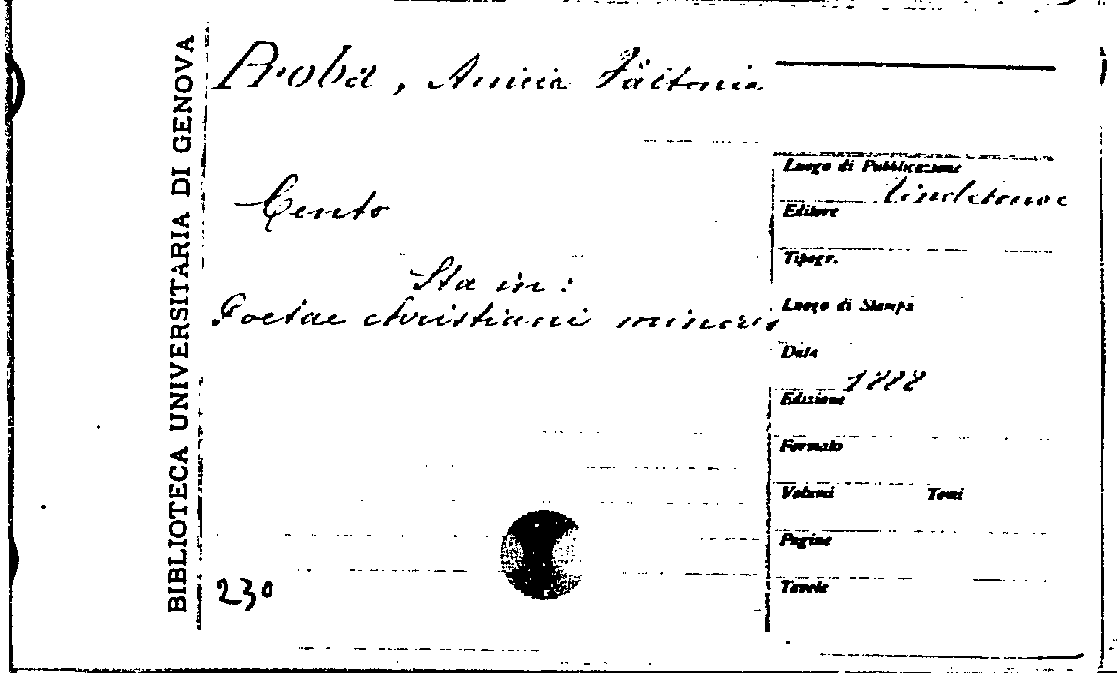 BIBLIOTECA UNIVERSITARIA DI GENOVA
Proba, Anicia Faltonia
Cento
Sta in:
Poetae christiani minores
Luogo di Pubblicazione
Vindobonae
Editore
Tipogr.
Luogo di Stampa
Data
1888
Edizione
Formato
Volumi Tomi
Pagine
Tavole
230